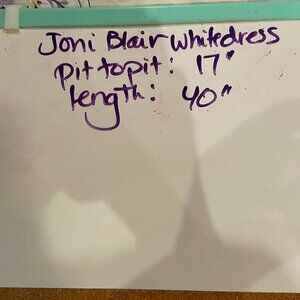 Joni Blair whitedress
pit to pit: 17"
length: 40"